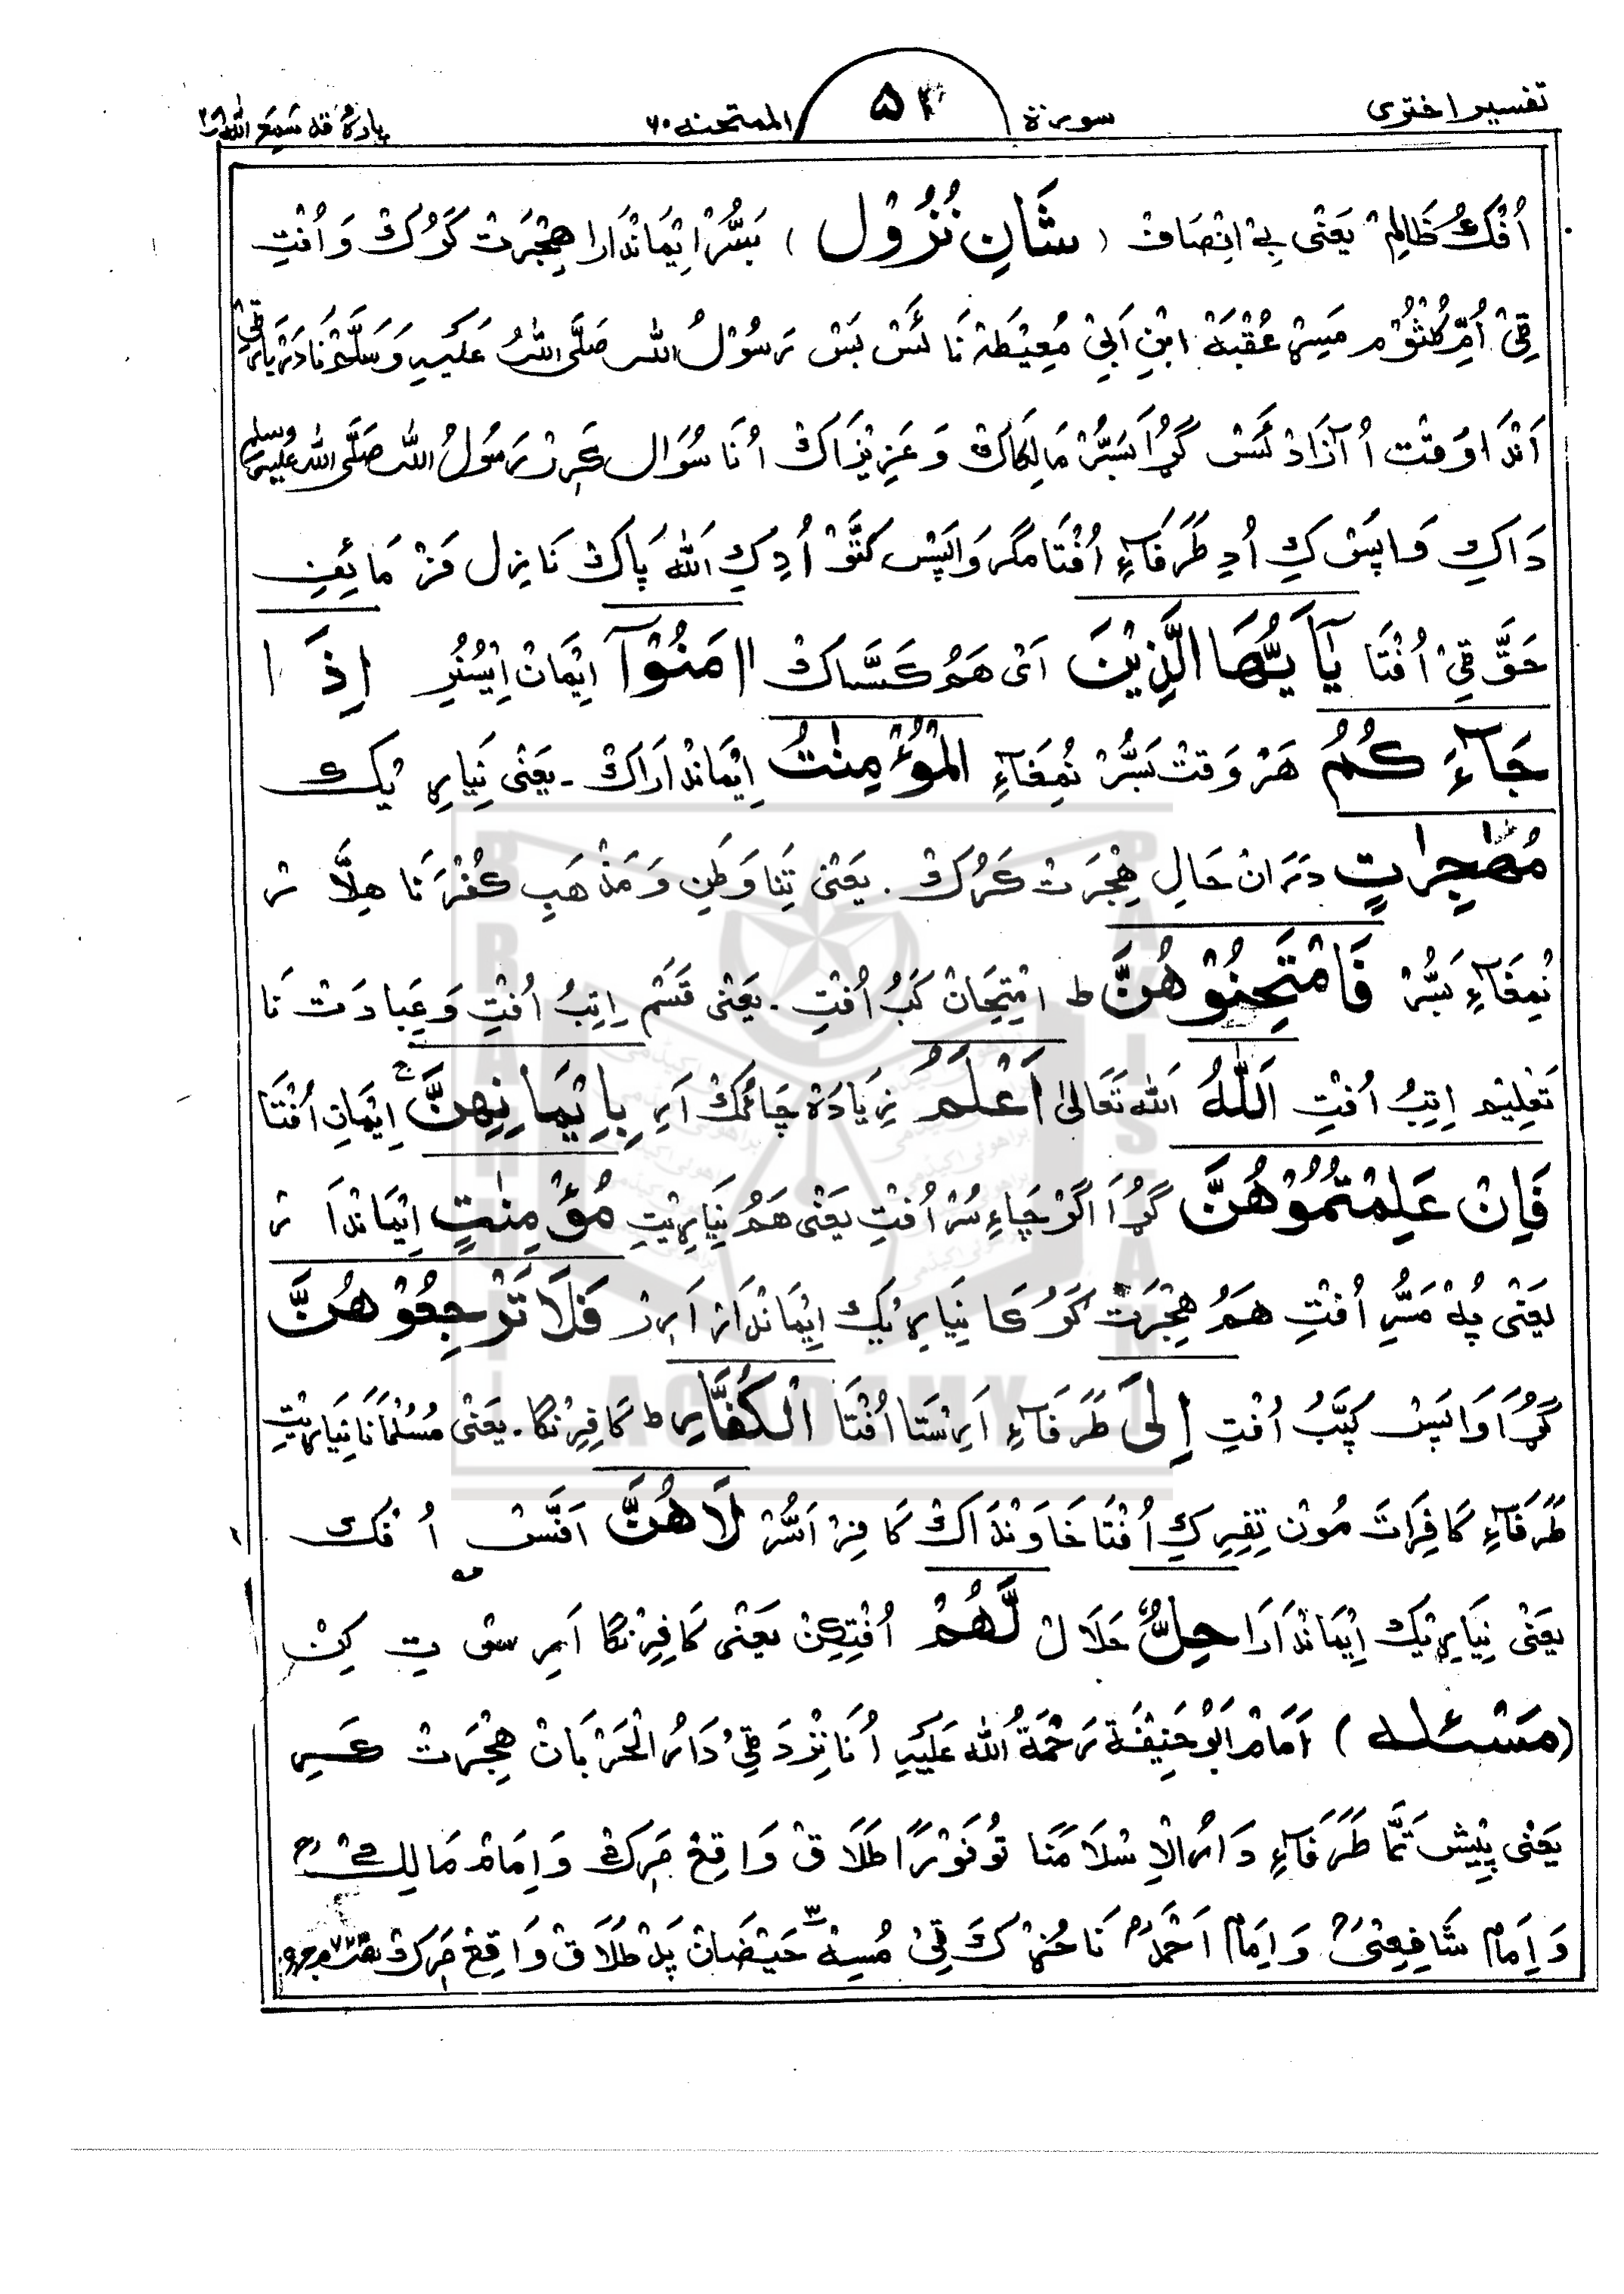 تفسیر اختری سورة ۵۴ الممتحنه ۶۰ پارهٔ قد سمع اللہ ۲۸
اُفْکُ ظَالِمْ یَعْنٰی بِےْ اِنْصَافْ (شَانِ نُزُوْل) بَسُّرْ اِیْمَانْدَارَا هِجْرَتْ کَرُکْ وَ اُفْتِ
قِیْ اُمِّ کُلْثُوْم مَسِیْرْ عُقْبَهْ ابْنِ اَبِیْ مُعِیْطَهْ نَا ئَسْ بَسْ رَسُوْلُ اللہ صَلَّی اللہُ عَلَیْہِ وَسَلَّمْ نَا دَرْبَارْ قِیْ
اَنْدَا وَقْت اُ آزَادْ ئَسْ گُڑَا بَسُّرْ مَالِکَاکْ وَ عَزِیْزَاکْ اُنَا سُوَال کَرِرْ رَسُوْلُ اللہ صَلَّی اللہُ عَلَیْہِ وسلم
دَاکِ وَاپَسْ کِ اُدِ طَرَفَآءِ اُفْتَا مگر وَاپَسْ کَتَّوْ اُدِ کِ اَللہ پَاکْ نَازِل فَرْمَائِفِ
حَقَّ قِیْ اُفْتَا یٰۤاَیُّهَا الَّذِیْنَ اَیْ هَمُ کَسَّاکْ اٰمَنُوْۤا اِیْمَانْ اِیْسُنُرِ اِذَا
جَآءَ کُمُ هَرْ وَقتْ بَسُّرْ نُمِغَآءِ الْمُؤْمِنٰتُ اِیْمَانْدَارَاکْ ۔ یَعْنٰی نِیَارِیْکْ
مُهٰجِرٰتٍ دَرَانْ حَالِ هِجْرَتْ کَرُکْ . یَعْنٰی تَنَا وَطَنِ وَ مَذْهَبِ کُفْرَ نَا هِلَّارْ
نُمِغَآءِ بَسُّرْ فَامْتَحِنُوْهُنَّ ط امْتِحَانْ کَبُ اُفْتِ ۔ یَعْنٰی قَسَمْ اِتِبُ اُفْتِ وَ عِبَادَتْ نَا
تَعْلِیْم اِتِبُ اُفْتِ اَللّٰهُ اَللہ تَعَالٰی اَعْلَمُ زِیَادَهْ چَائُکْ اَرِ بِاِیْمَانِهِنَّ ج اِیْمَانِ اُفْتَا
فَاِنْ عَلِمْتُمُوْهُنَّ گُڑَا اَگَرْ چَاءِسُرْ اُفْتِ یَعْنٰی هَمُ نِیَارِیْتِ مُؤْمِنٰتٍ اِیْمَانْدَارْ
یَعْنٰی پُهْ مَسُّرِ اُفْتِ هَمُ هِجْرَتْ کَرُکَا نِیَارِیْکْ اِیْمَانْدَارْ اَرِرْ فَلَا تَرْجِعُوْهُنَّ
گُڑَا وَاپَسْ کَپَّبُ اُفْتِ اِلَی طَرَفَآءِ اَرِسْتَا اُفْتَا الْکُفَّارِ ط کَافِرِنْکَا ۔ یَعْنٰی مُسُلْمَانَا نِیَارِیْتِ
طَرَفَآءِ کَافِرَاتَ مُوْن تِفِرِ کِ اُفْتَا خَاوَنْدَاکْ کَافِرْ اَسُّرْ لَا هُنَّ اَفَّسْ اُفْکْ
یَعْنٰی نِیَارِیْکْ اِیْمَانْدَارَا حِلٌّ حَلَالْ لَّهُمْ اُفْتِکِنْ یَعْنٰی کَافِرِنْکَا اَرِسْتِ کِنْ
(مَسْئلہ) اَمَامْ اَبُوْحَنِیْفَةَ رَحْمَةُ اللہ عَلَیْہِ اُنَا نِزْدَ قِیْ دَارُ الْحَرْبَانْ هِجْرَتْ عَسِر
یَعْنٰی پِیْش تَمَّا طَرَفَآءِ دَارُالْاِسْلَامَنَا تَو فَوْرًا طَلَاقْ وَاقِعْ مَرِکْ وَ اِمَامْ مَالِکْؒ
وَ اِمَامْ شَافِعِیْؒ وَ اِمَامْ اَحْمَدْؒ نَا نِزْدِ کَ قِیْ مُسِهْ ۳ حَیْضَانْ پَدْ طَلَاقْ وَاقِعْ مَرِکْ
BRAHUI ACADEMY PAKISTAN